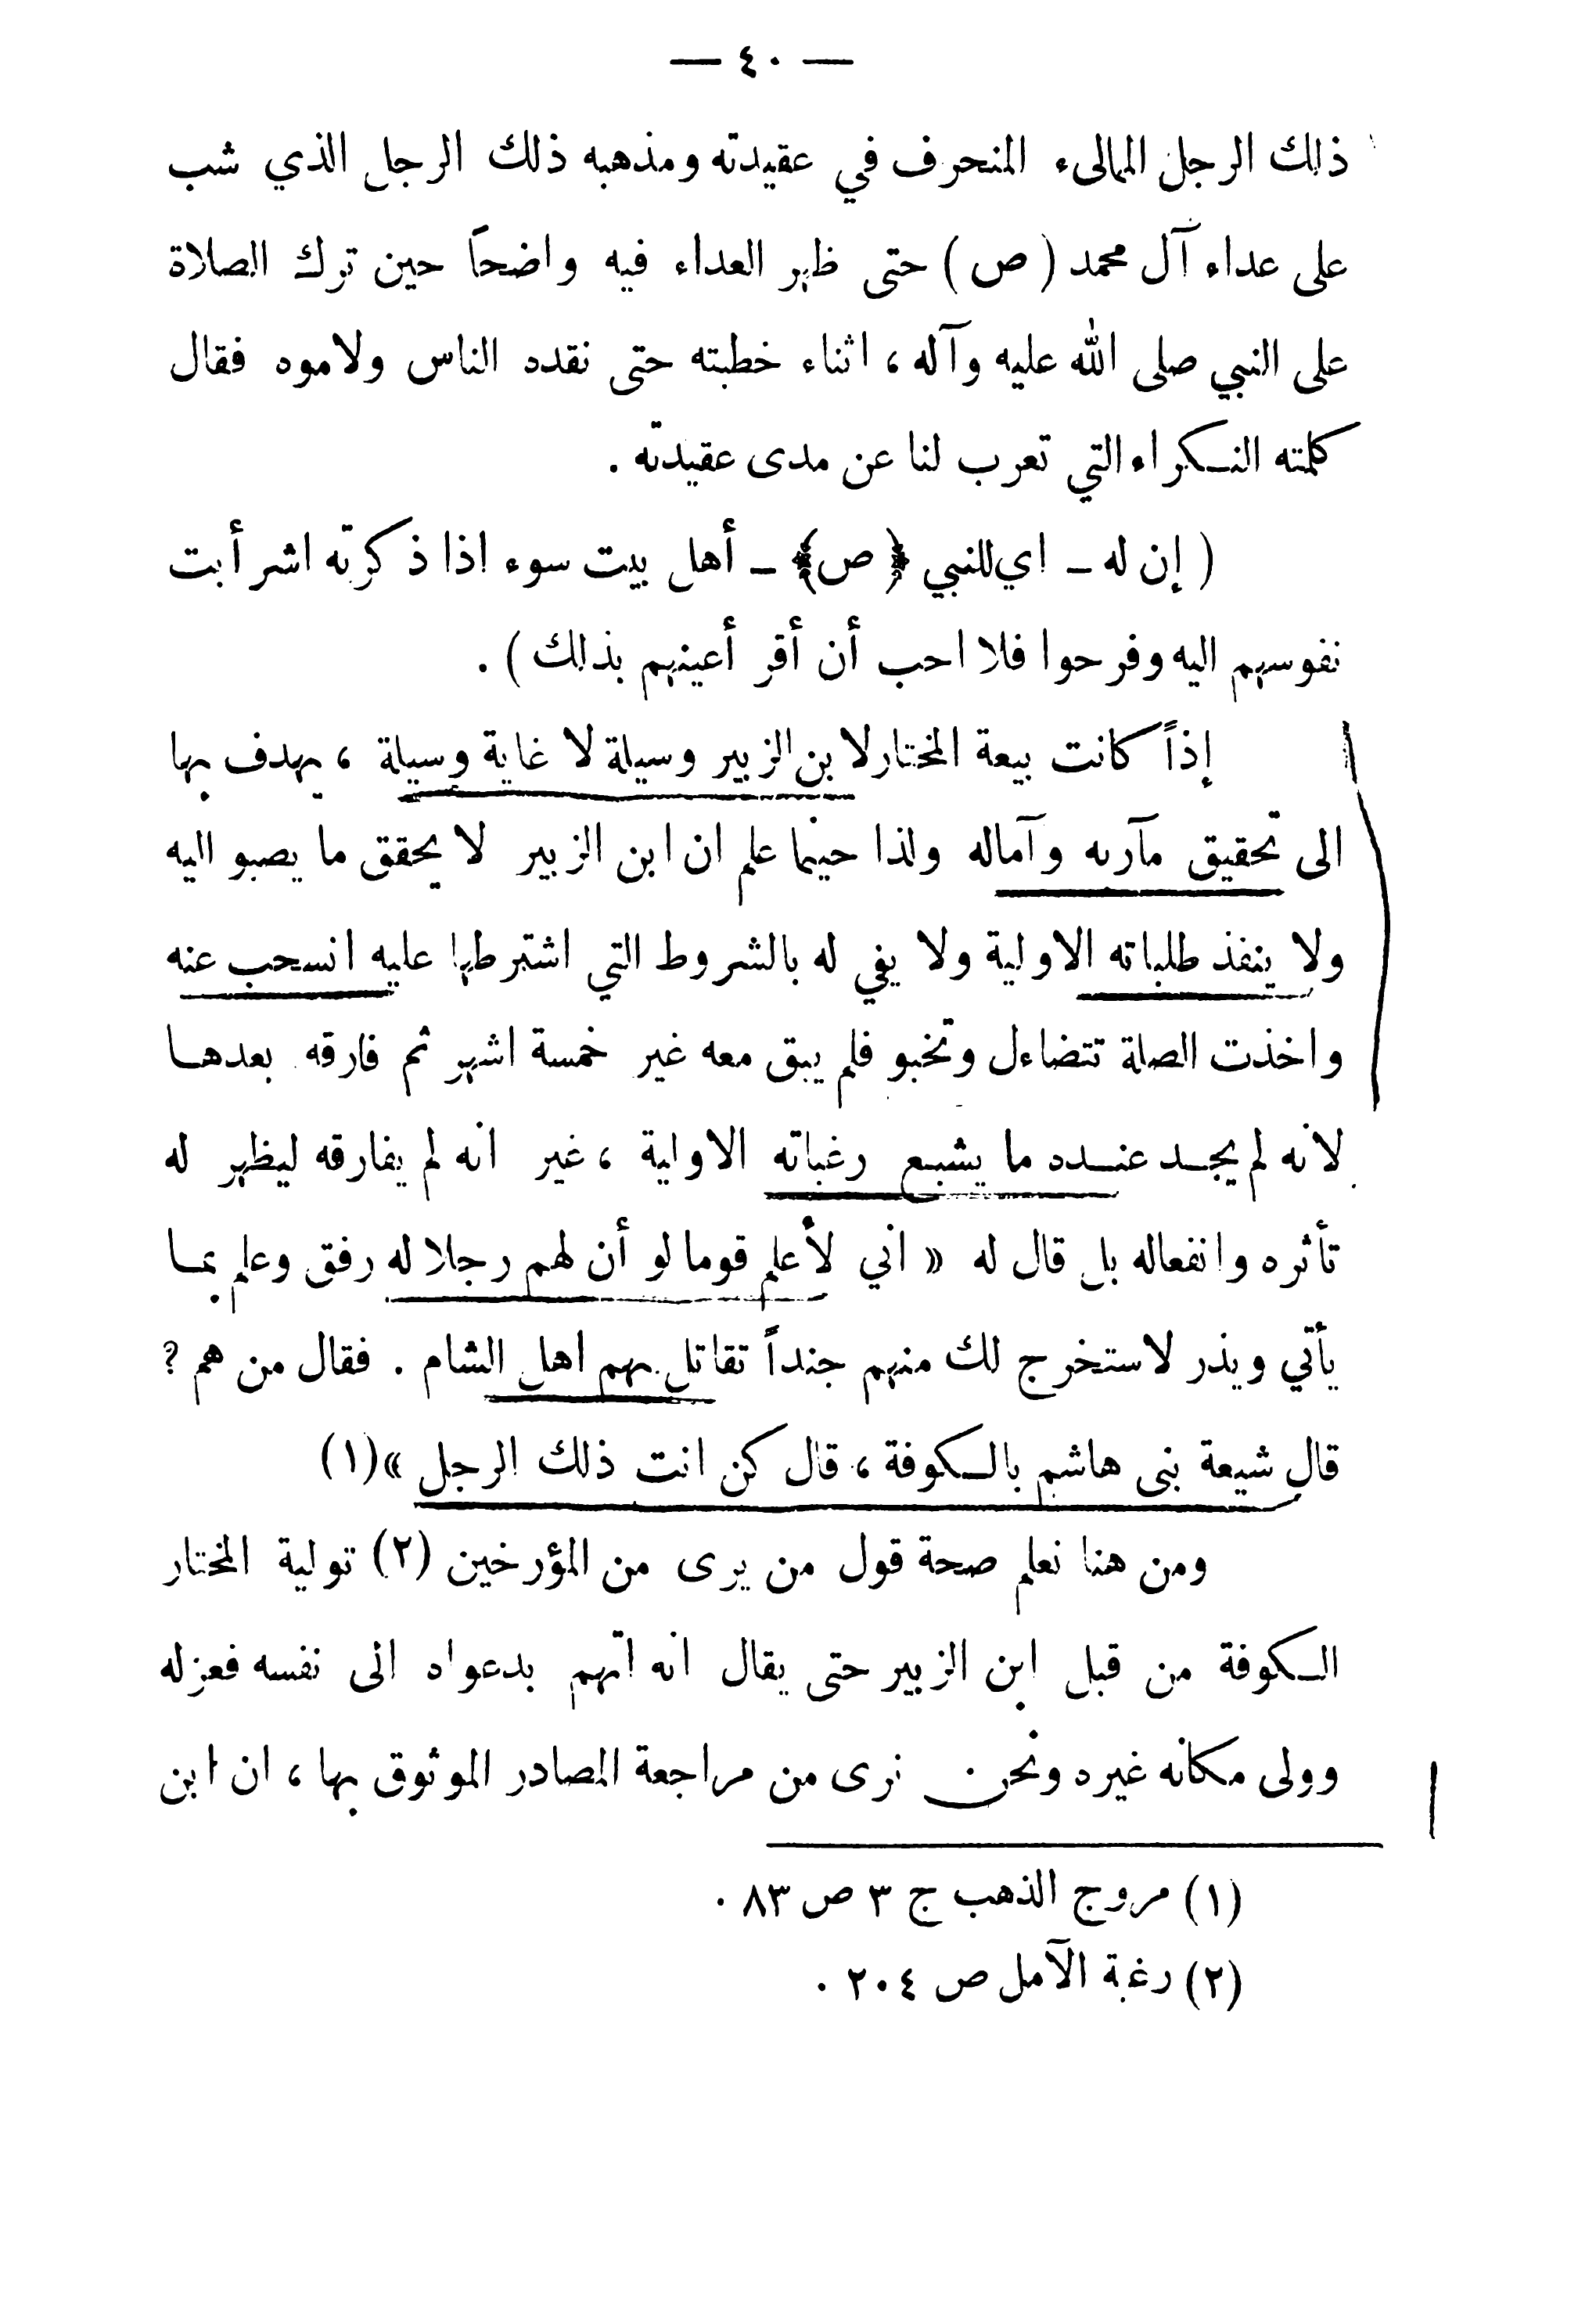 — ٤٠ —
ذلك الرجل الممالىء المنحرف في عقيدته ومذهبه ذلك الرجل الذي شب
على عداء آل محمد ( ص ) حتى ظهر العداء فيه واضحاً حين ترك الصلاة
على النبي صلى الله عليه وآله ، اثناء خطبته حتى نقده الناس ولاموه فقال
كلمته النكراء التي تعرب لنا عن مدى عقيدته .
( إن له ـ اي للنبي ﴿ ص ﴾ ـ أهل بيت سوء اذا ذكرته اشرأبت
نفوسهم اليه وفرحوا فلا احب أن أقر أعينهم بذلك ) .
إذاً كانت بيعة المختار لابن الزبير وسيلة لا غاية وسيلة ، يهدف بها
الى تحقيق مآربه وآماله ولذا حينما علم ان ابن الزبير لا يحقق ما يصبو اليه
ولا ينفذ طلباته الاولية ولا يفي له بالشروط التي اشترطها عليه انسحب عنه
واخذت الصلة تتضاءل وتخبو فلم يبق معه غير خمسة اشهر ثم فارقه بعدهـا
لانه لم يجـد عنـده ما يشبـع رغباته الاولية ، غير انه لم يفارقه ليظهر له
تأثره وانفعاله بل قال له « اني لأعلم قوما لو أن لهم رجلا له رفق وعلم بمـا
يأتي ويذر لاستخرج لك منهم جنداً تقاتل بهم اهل الشام . فقال من هم ?
قال شيعة بني هاشم بالـكوفة ، قال كن انت ذلك الرجل »(١)
ومن هنا نعلم صحة قول من يرى من المؤرخين (٢) تولية المختار
الـكوفة من قبل ابن الزبير حتى يقال انه اتهم بدعواه الى نفسه فعزله
وولى مكانه غيره ونحن نرى من مراجعة المصادر الموثوق بها ، ان ابن
(١) مروج الذهب ج ٣ ص ٨٣ .
(٢) رغبة الآمل ص ٢٠٤ .